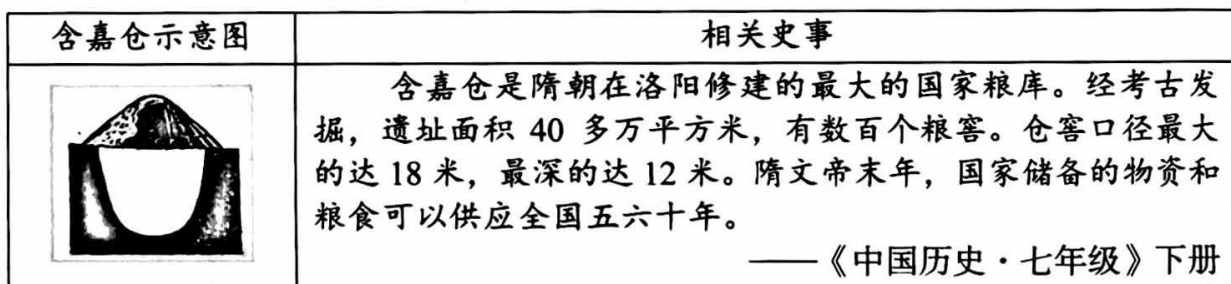 含嘉仓示意图
相关史事
含嘉仓是隋朝在洛阳修建的最大的国家粮库。经考古发
掘，遗址面积 40 多万平方米，有数百个粮窖。仓窖口径最大
的达 18 米，最深的达 12 米。隋文帝末年，国家储备的物资和
粮食可以供应全国五六十年。
——《中国历史·七年级》下册